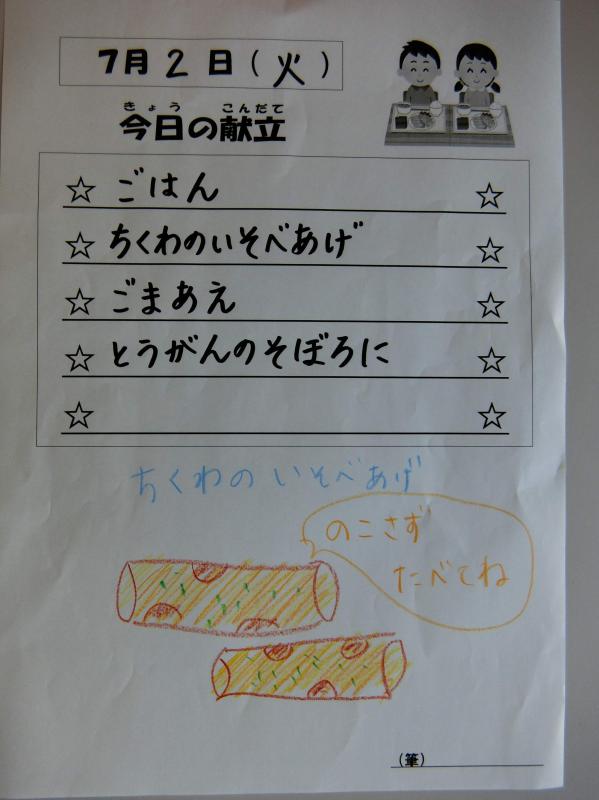 7月2日(火)
きょう こんだて
今日の献立
☆ ごはん ☆
☆ ちくわのいそべあげ ☆
☆ ごまあえ ☆
☆ とうがんのそぼろに ☆
☆ ☆
ちくわのいそべあげ
のこさず
たべてね
(筆)